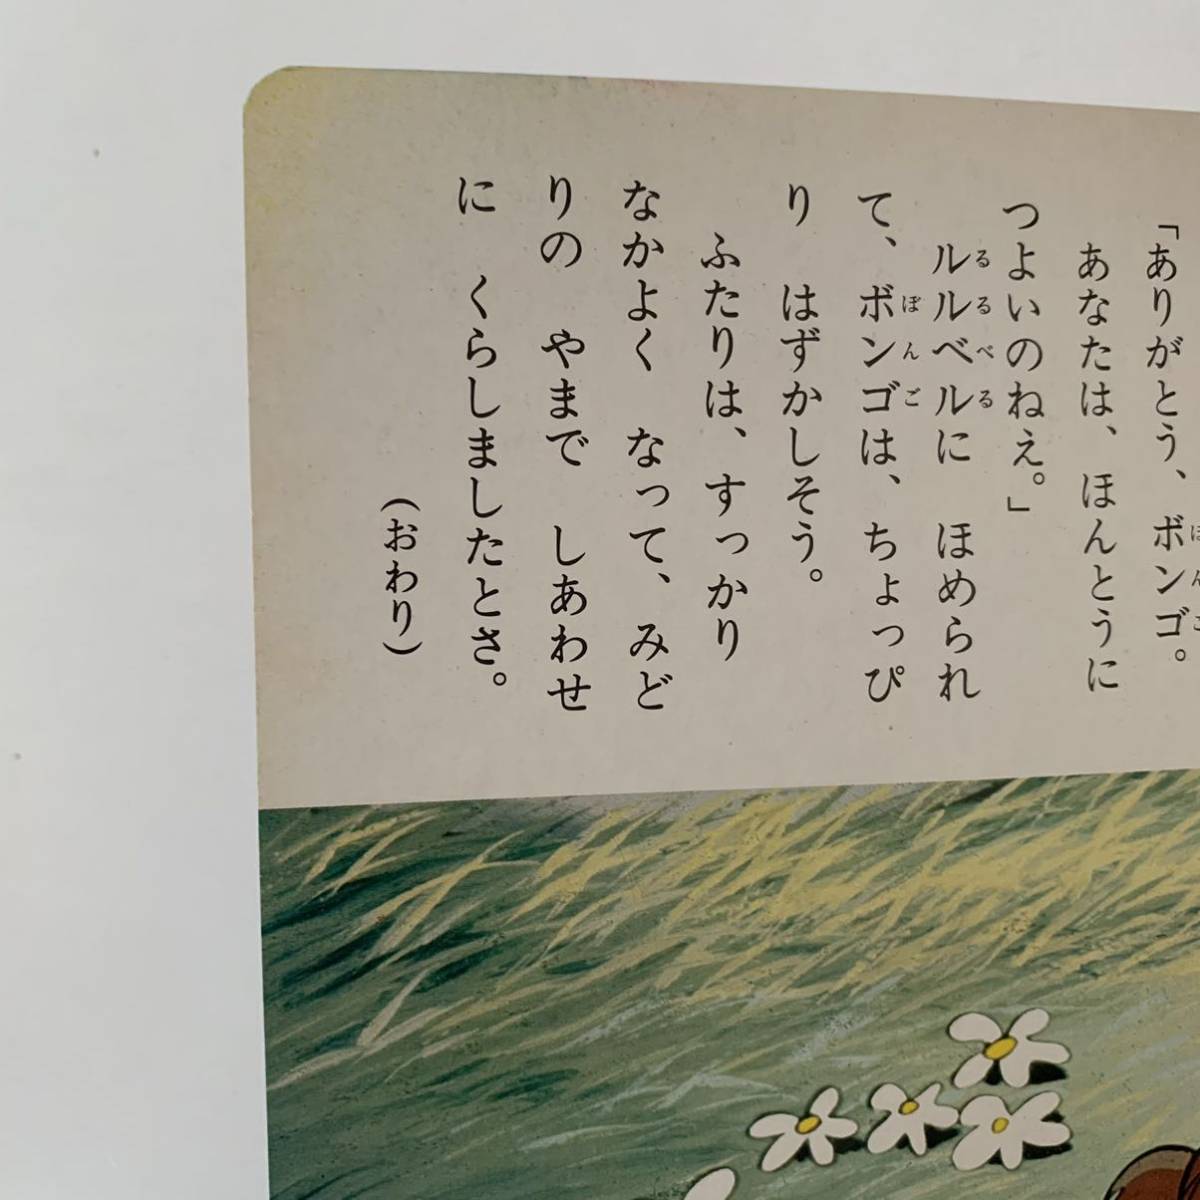 「ありがとう、ボンゴ。
あなたは、ほんとうに
つよいのねえ。」
ルルベルに ほめられ
て、ボンゴは、ちょっぴ
り はずかしそう。
ふたりは、すっかり
なかよく なって、みど
りの やまで しあわせ
に くらしましたとさ。
(おわり)